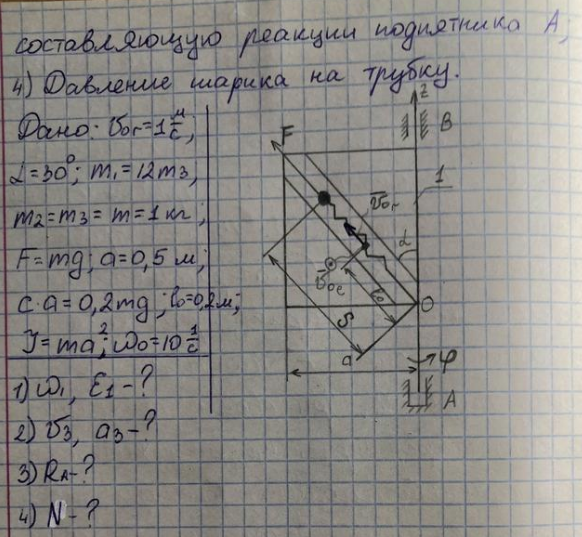 составляющую реакции подпятника А,
4) Давление шарика на трубку.
Дано: V̄or=1 м/с;
α=30°; m₁=12m₃,
m₂=m₃=m=1 кг;
F=mg; a=0,5 м;
c·a=0,2mg; l₀=0,2м;
J=ma²; ω₀=10 1/с
1) ω₁, ε₁-?
2) v₃, a₃-?
3) RA-?
4) N-?
F
z
B
1
V̄or
α
V̄oe
l₀
O
S
a
φ
A